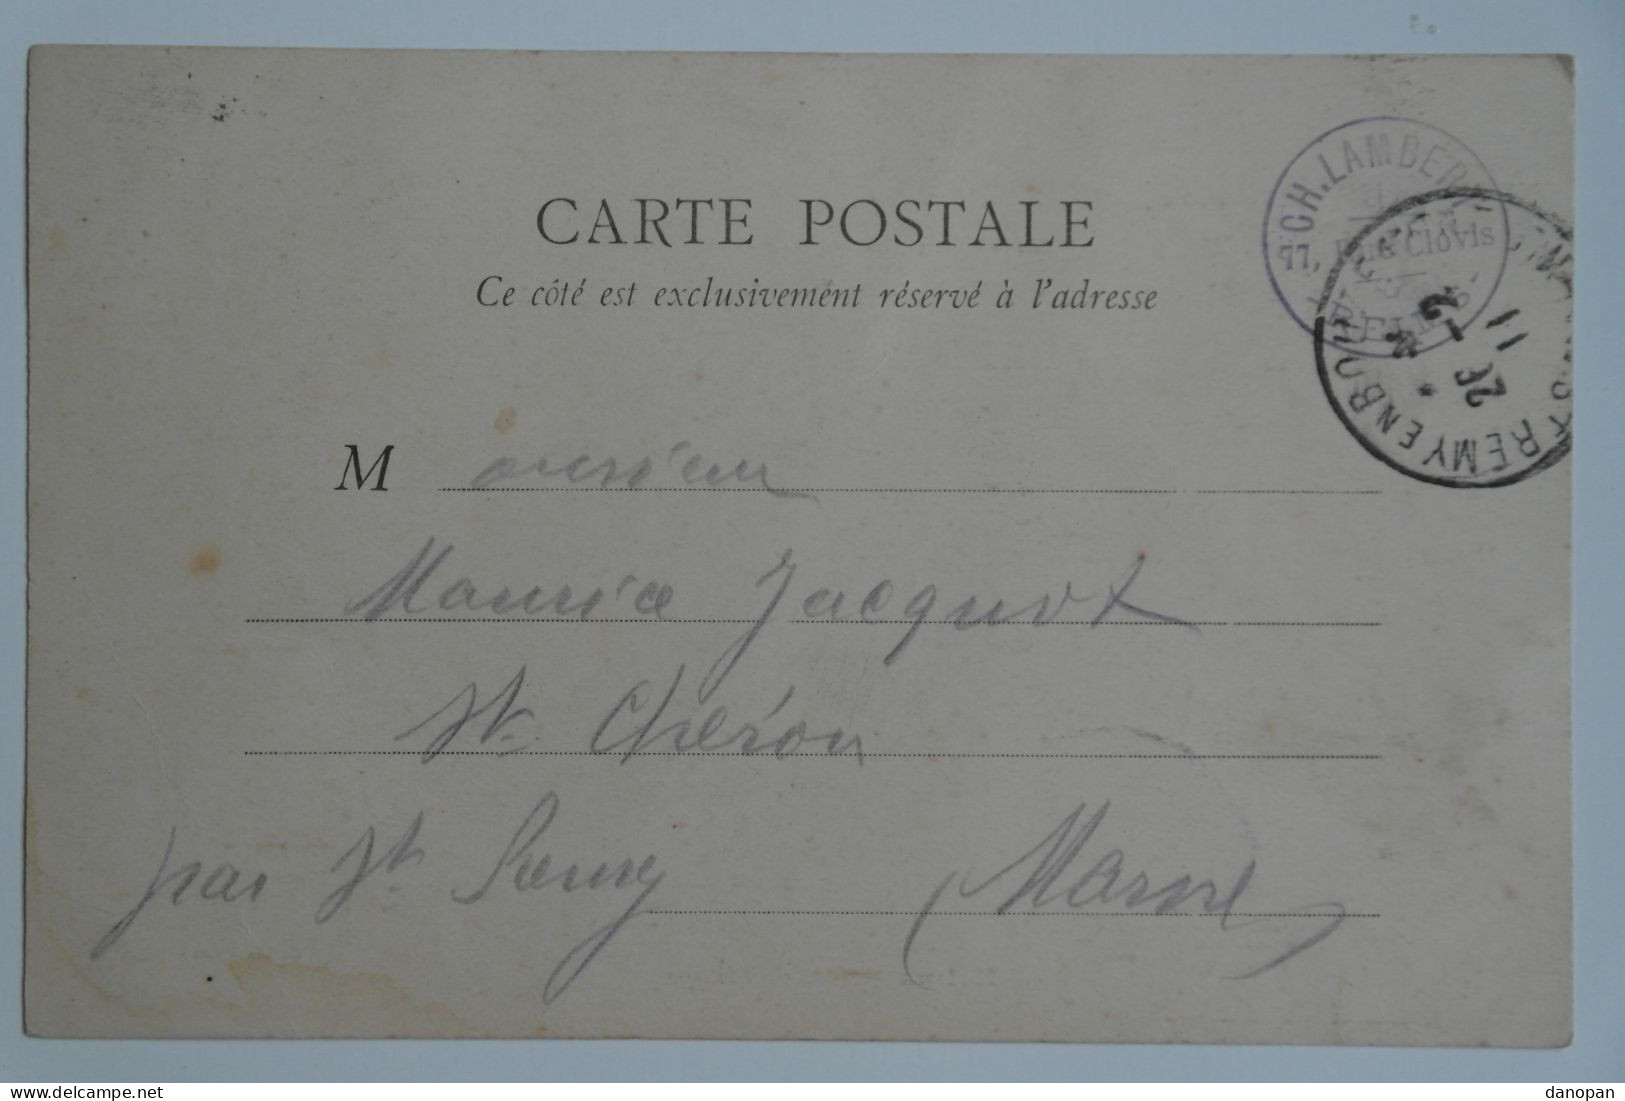 CARTE POSTALE
Ce côté est exclusivement réservé à l'adresse
CH. LAMBERT
77, Rue Clovis
REIMS
ST REMY EN BOUZ
11
-2
Monsieur
Maurice Jacquot
St Chéron
par St Remy (Marne)
danopan